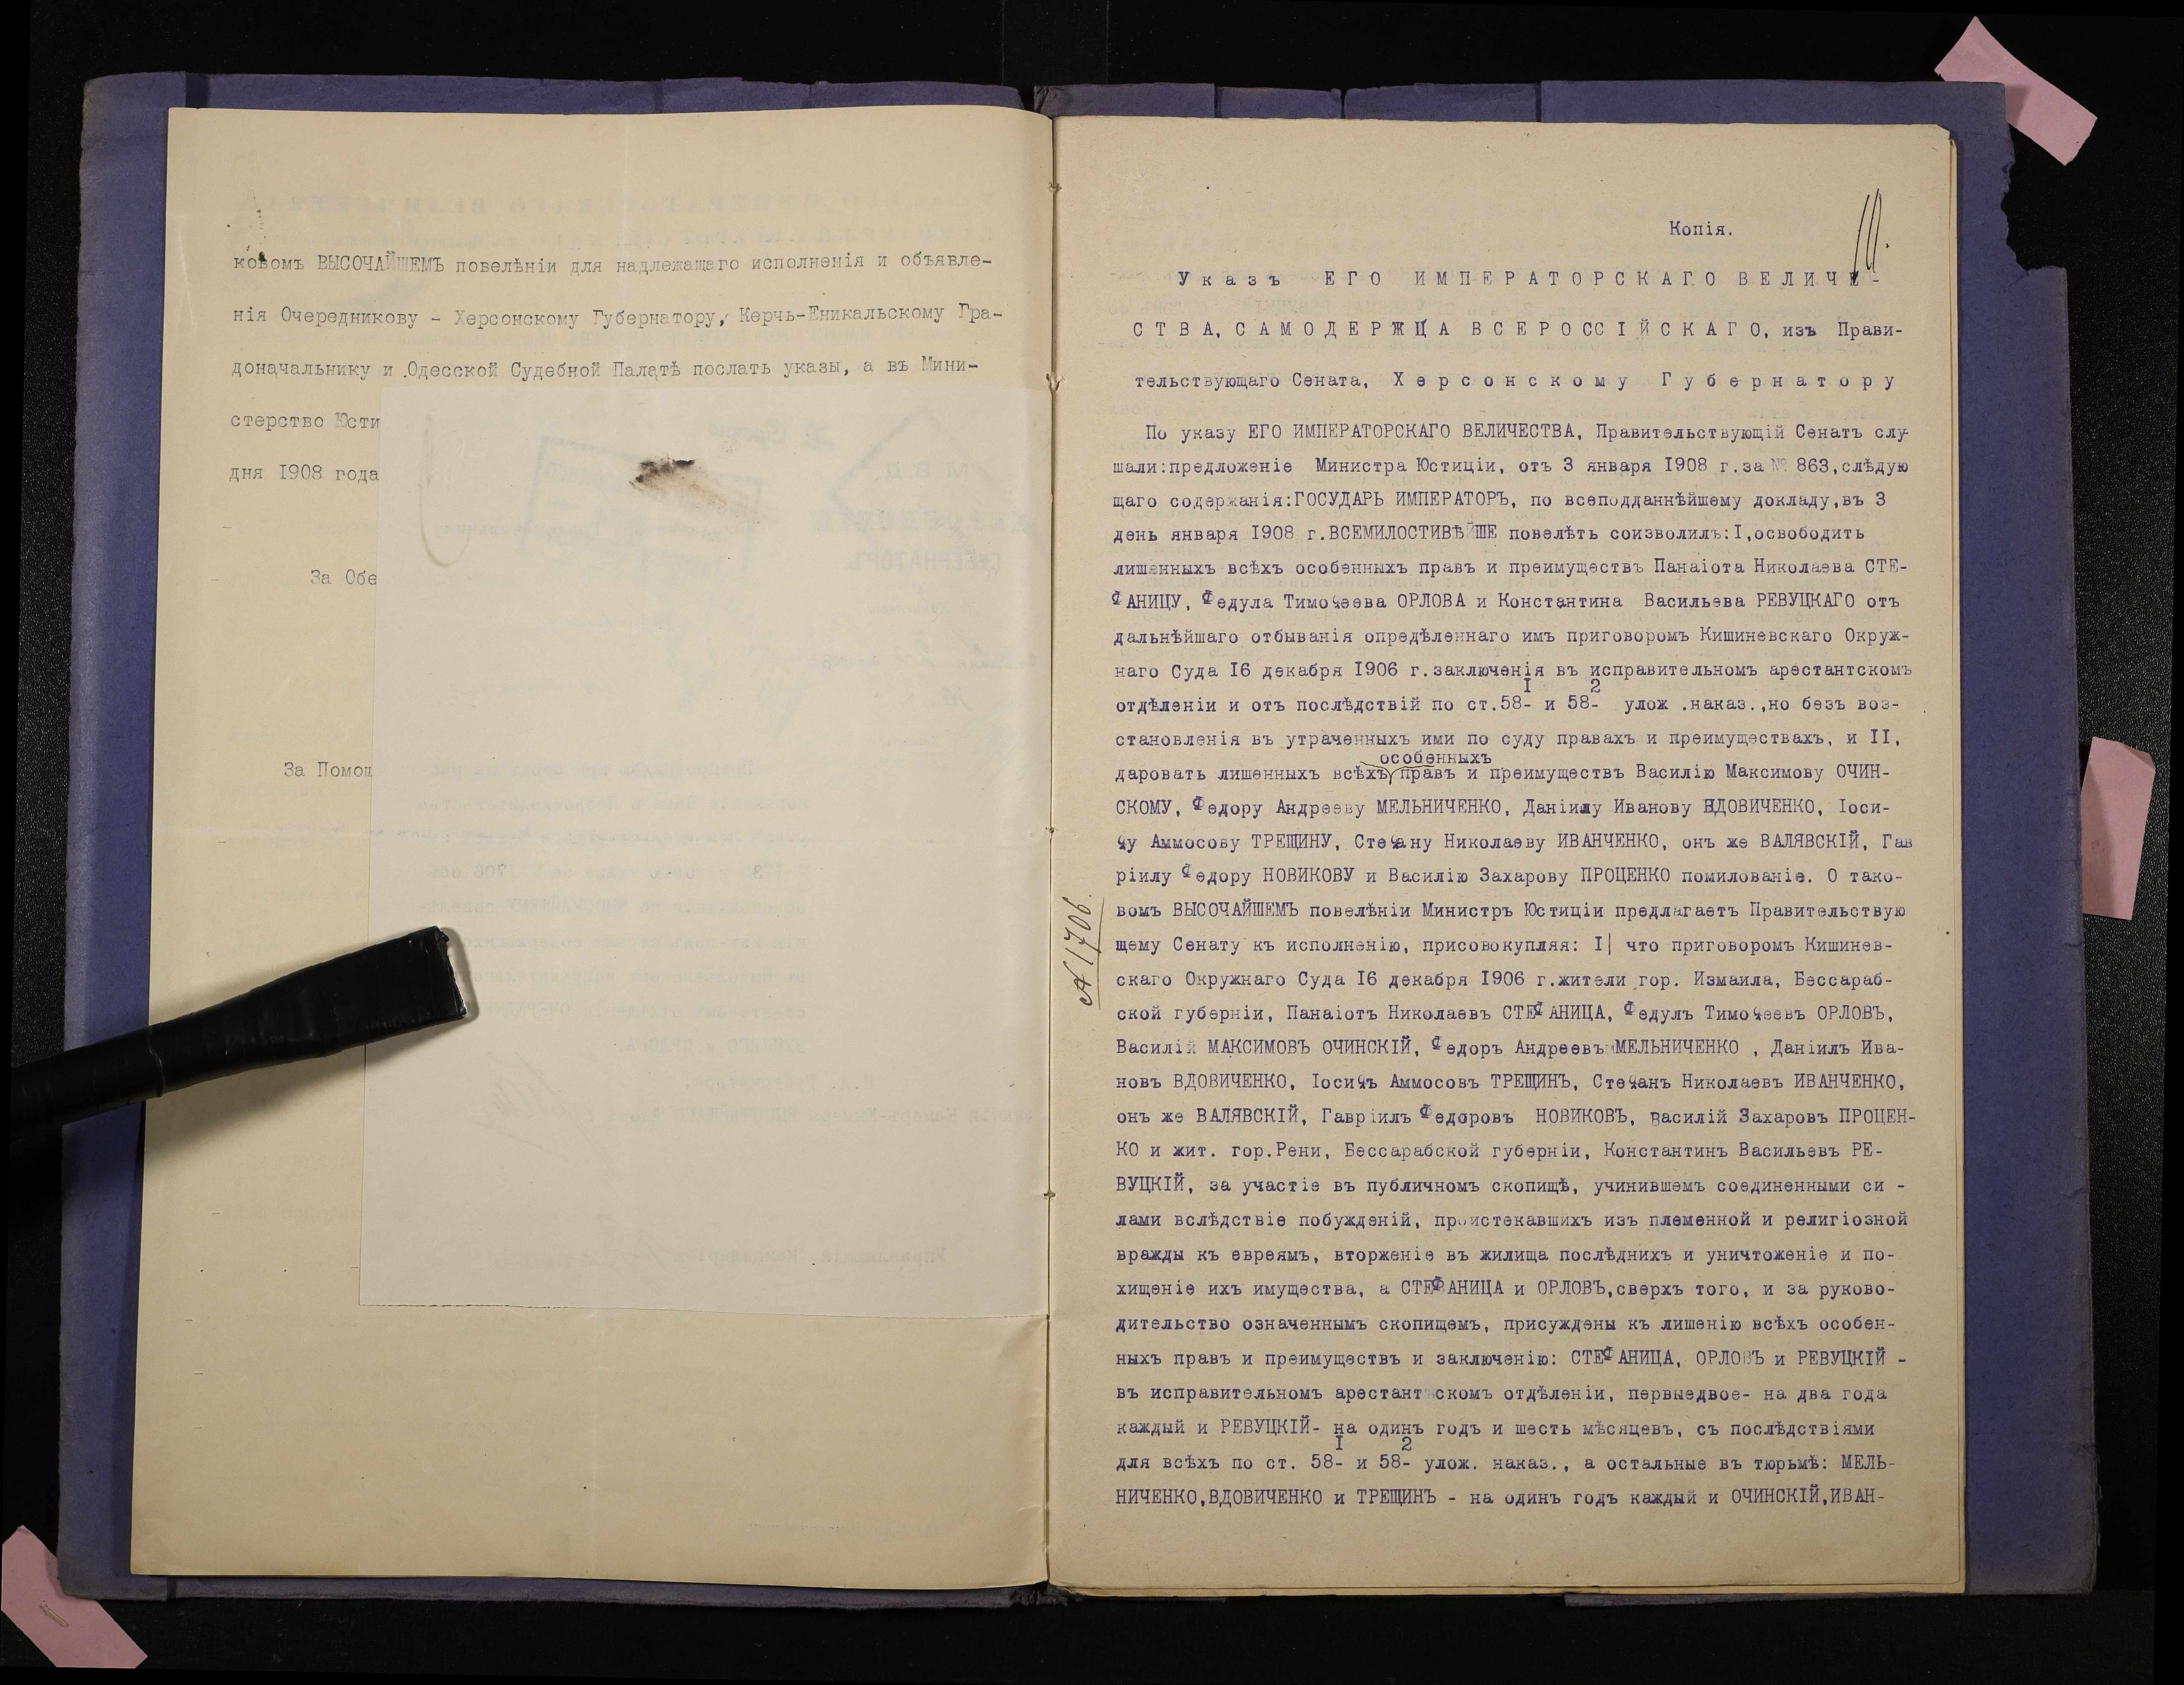 ковомъ ВЫСОЧАЙШЕМЪ повелѣніи для надлежащаго исполненія и объявле-
нія Очередникову - Херсонскому Губернатору, Керчь-Еникальскому Гра-
доначальнику и Одесской Судебной Палатѣ послать указы, а въ Мини-
стерство Юсти
дня 1908 года
За Обе
За Помощ
Копія.
Указъ ЕГО ИМПЕРАТОРСКАГО ВЕЛИЧЕ-
СТВА, САМОДЕРЖЦА ВСЕРОССІЙСКАГО, изъ Прави-
тельствующаго Сената, Херсонскому Губернатору
По указу ЕГО ИМПЕРАТОРСКАГО ВЕЛИЧЕСТВА, Правительствующій Сенатъ слу-
шали:предложеніе Министра Юстиціи, отъ 3 января 1908 г.за № 863,слѣдую
щаго содержанія:ГОСУДАРЬ ИМПЕРАТОРЪ, по всеподданнѣйшему докладу,въ 3
день января 1908 г.ВСЕМИЛОСТИВѢЙШЕ повелѣть соизволилъ:I,освободить
лишенныхъ всѣхъ особенныхъ правъ и преимуществъ Панаіота Николаева СТЕ-
ФАНИЦУ, Федула Тимофеева ОРЛОВА и Константина Васильева РЕВУЦКАГО отъ
дальнѣйшаго отбыванія опредѣленнаго имъ приговоромъ Кишиневскаго Окруж-
наго Суда I6 декабря 1906 г.заключенія въ исправительномъ арестантскомъ
отдѣленіи и отъ послѣдствій по ст.58-I и 58-2 улож .наказ.,но безъ воз-
становленія въ утраченныхъ ими по суду правахъ и преимуществахъ, и II,
даровать лишенныхъ всѣхъ особенныхъ правъ и преимуществъ Василію Максимову ОЧИН-
СКОМУ, Федору Андрееву МЕЛЬНИЧЕНКО, Даніилу Иванову ВДОВИЧЕНКО, Іоси-
фу Аммосову ТРЕЩИНУ, Стефану Николаеву ИВАНЧЕНКО, онъ же ВАЛЯВСКІЙ, Гав
ріилу Федору НОВИКОВУ и Василію Захарову ПРОЦЕНКО помилованіе. О тако-
вомъ ВЫСОЧАЙШЕМЪ повелѣніи Министръ Юстиціи предлагаетъ Правительствую
щему Сенату къ исполненію, присовокупляя: I| что приговоромъ Кишинев-
скаго Окружнаго Суда I6 декабря 1906 г.жители гор. Измаила, Бессараб-
ской губерніи, Панаіотъ Николаевъ СТЕФАНИЦА, Федулъ Тимофеевъ ОРЛОВЪ,
Василій МАКСИМОВЪ ОЧИНСКІЙ, Федоръ Андреевъ МЕЛЬНИЧЕНКО , Даніилъ Ива-
новъ ВДОВИЧЕНКО, Іосифъ Аммосовъ ТРЕЩИНЪ, Стефанъ Николаевъ ИВАНЧЕНКО,
онъ же ВАЛЯВСКІЙ, Гавріилъ Федоровъ НОВИКОВЪ, Василій Захаровъ ПРОЦЕН-
КО и жит. гор.Рени, Бессарабской губерніи, Константинъ Васильевъ РЕ-
ВУЦКІЙ, за участіе въ публичномъ скопищѣ, учинившемъ соединенными си -
лами вслѣдствіе побужденій, проистекавшихъ изъ племенной и религіозной
вражды къ евреямъ, вторженіе въ жилища послѣднихъ и уничтоженіе и по-
хищеніе ихъ имущества, а СТЕФАНИЦА и ОРЛОВЪ,сверхъ того, и за руково-
дительство означеннымъ скопищемъ, присуждены къ лишенію всѣхъ особен-
ныхъ правъ и преимуществъ и заключенію: СТЕФАНИЦА, ОРЛОВЪ и РЕВУЦКІЙ -
въ исправительномъ арестантскомъ отдѣленіи, первыедвое- на два года
каждый и РЕВУЦКІЙ- на одинъ годъ и шесть мѣсяцевъ, съ послѣдствіями
для всѣхъ по ст. 58-I и 58-2 улож. наказ., а остальные въ тюрьмѣ: МЕЛЬ-
НИЧЕНКО,ВДОВИЧЕНКО и ТРЕЩИНЪ - на одинъ годъ каждый и ОЧИНСКІЙ,ИВАН-
№ 1706.